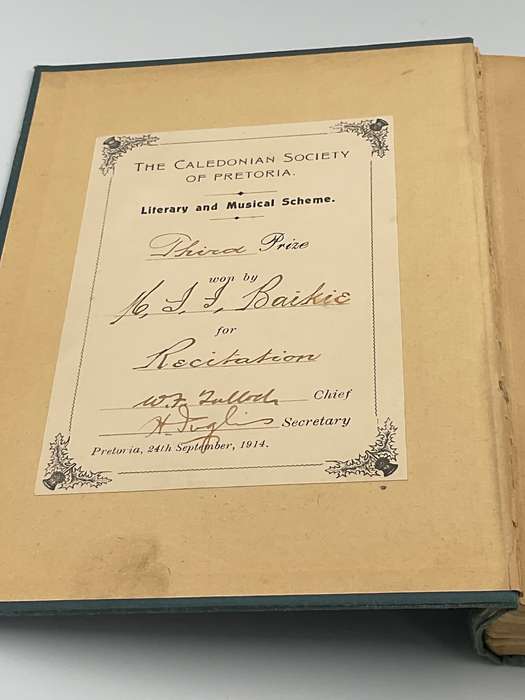 THE CALEDONIAN SOCIETY
OF PRETORIA.
Literary and Musical Scheme.
Third Prize
won by
Baikie
for
Recitation
W. F. Tulloch Chief
Secretary
Pretoria, 24th September, 1914.